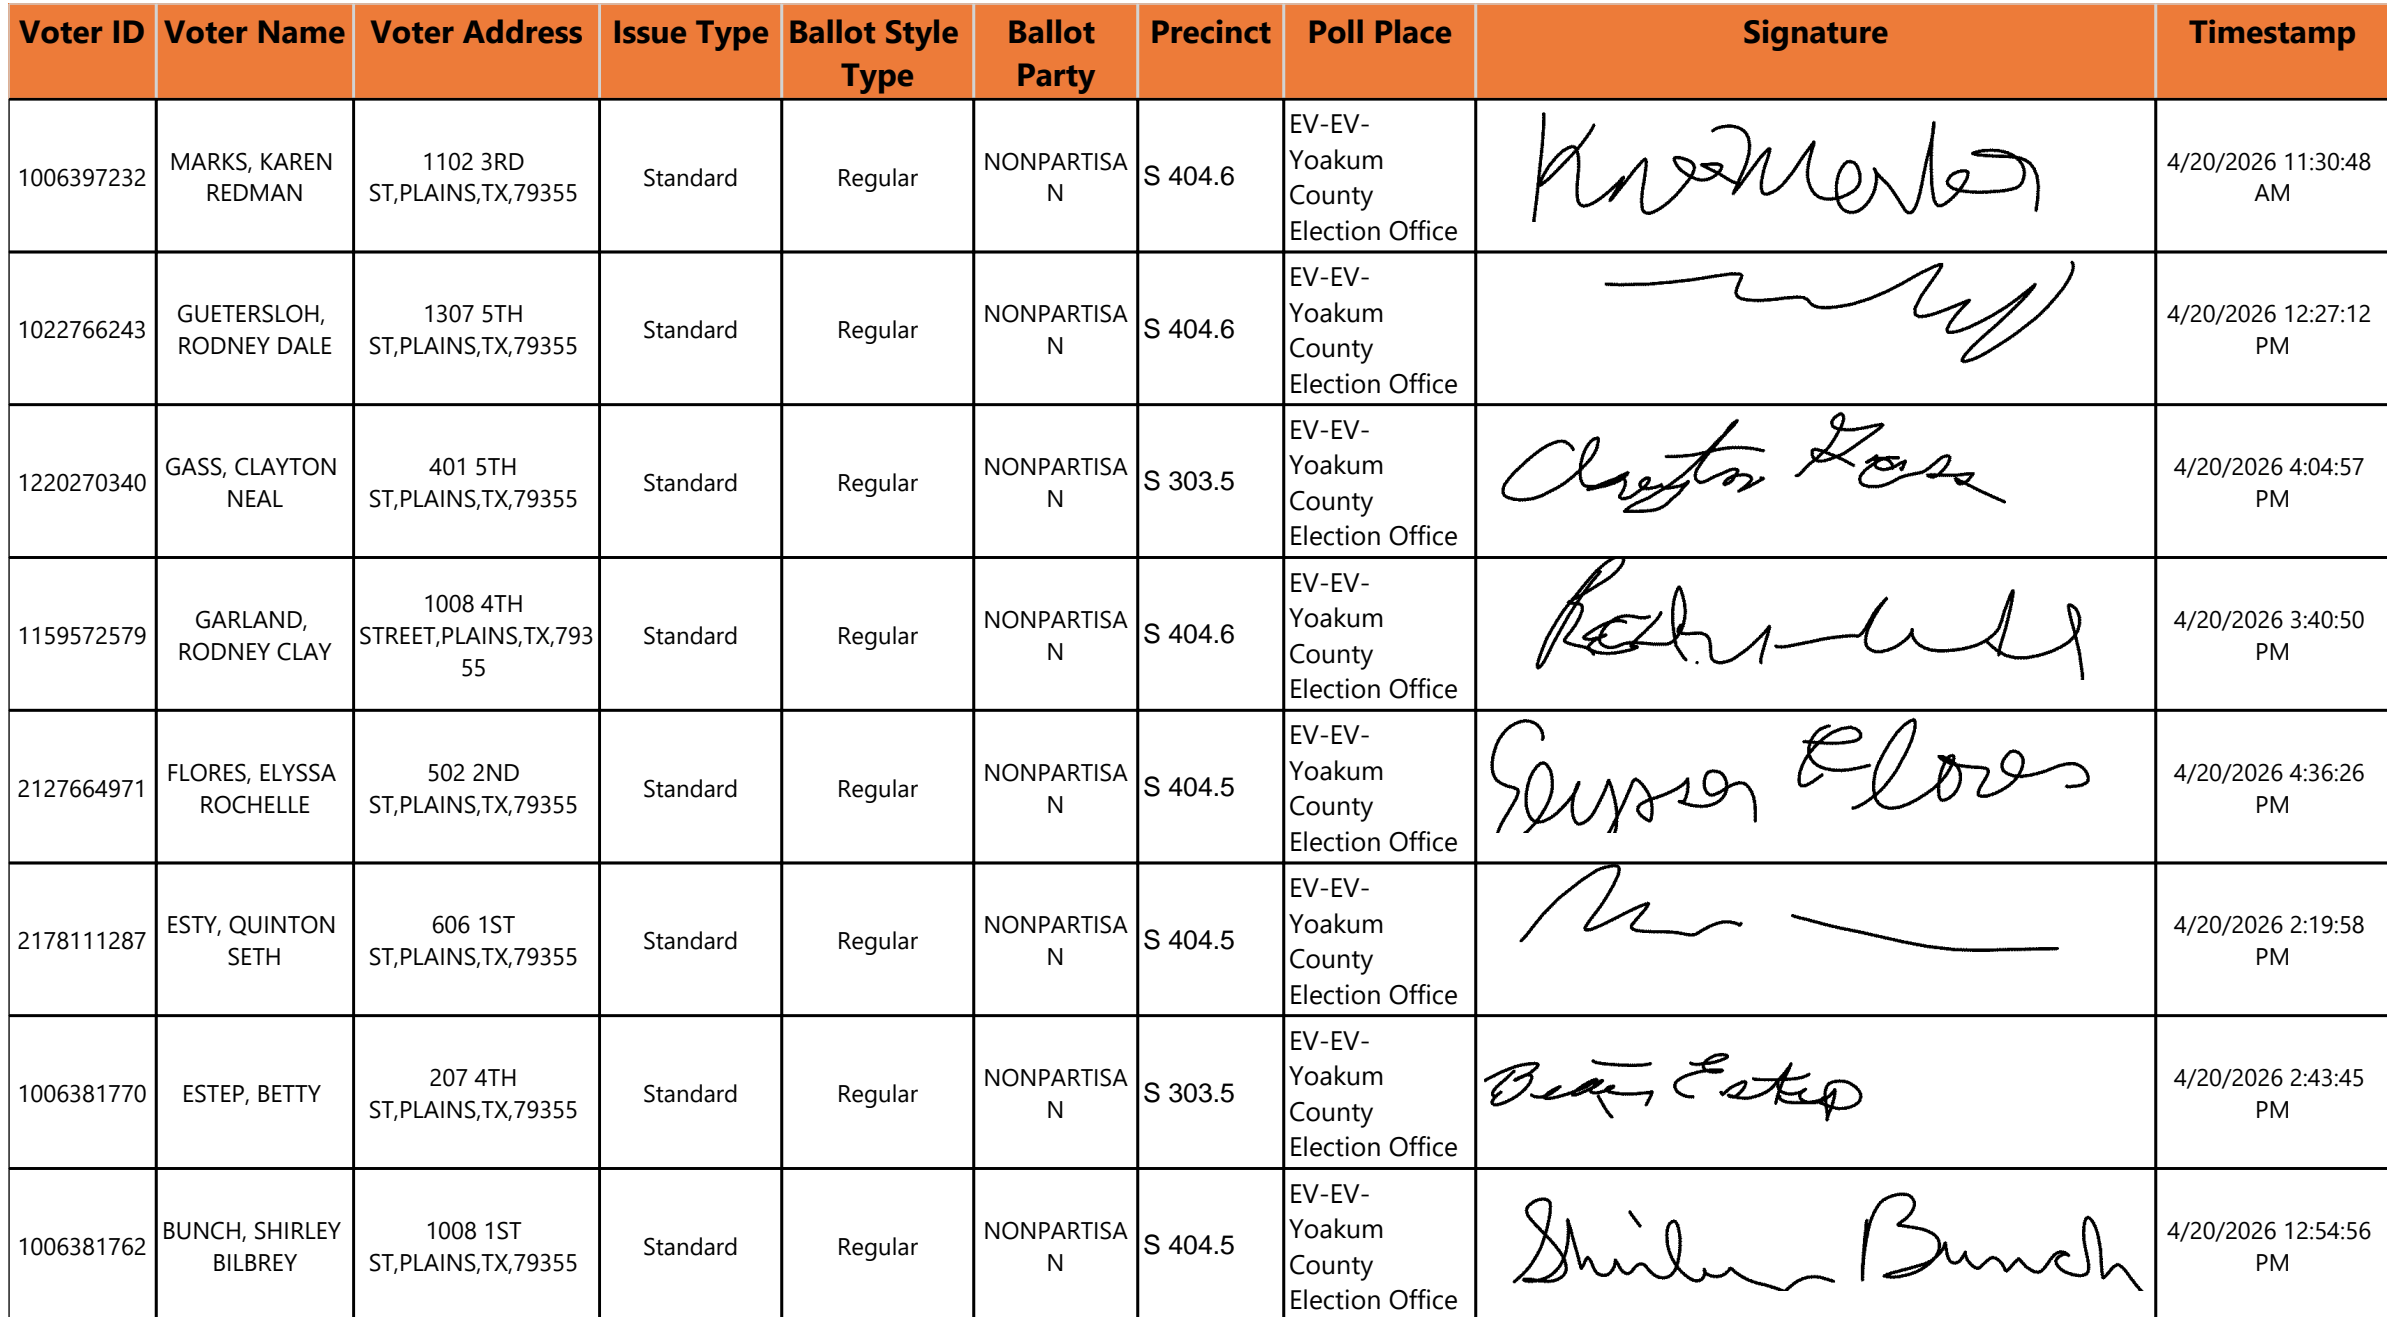 Voter ID Voter Name Voter Address Issue Type Ballot Style Type Ballot Party Precinct Poll Place Signature Timestamp
1006397232 MARKS, KAREN REDMAN 1102 3RD ST,PLAINS,TX,79355 Standard Regular NONPARTISAN S 404.6 EV-EV-Yoakum County Election Office 4/20/2026 11:30:48 AM
1022766243 GUETERSLOH, RODNEY DALE 1307 5TH ST,PLAINS,TX,79355 Standard Regular NONPARTISAN S 404.6 EV-EV-Yoakum County Election Office 4/20/2026 12:27:12 PM
1220270340 GASS, CLAYTON NEAL 401 5TH ST,PLAINS,TX,79355 Standard Regular NONPARTISAN S 303.5 EV-EV-Yoakum County Election Office Clayton Gass 4/20/2026 4:04:57 PM
1159572579 GARLAND, RODNEY CLAY 1008 4TH STREET,PLAINS,TX,79355 Standard Regular NONPARTISAN S 404.6 EV-EV-Yoakum County Election Office 4/20/2026 3:40:50 PM
2127664971 FLORES, ELYSSA ROCHELLE 502 2ND ST,PLAINS,TX,79355 Standard Regular NONPARTISAN S 404.5 EV-EV-Yoakum County Election Office Elyssa Flores 4/20/2026 4:36:26 PM
2178111287 ESTY, QUINTON SETH 606 1ST ST,PLAINS,TX,79355 Standard Regular NONPARTISAN S 404.5 EV-EV-Yoakum County Election Office 4/20/2026 2:19:58 PM
1006381770 ESTEP, BETTY 207 4TH ST,PLAINS,TX,79355 Standard Regular NONPARTISAN S 303.5 EV-EV-Yoakum County Election Office Betty Estep 4/20/2026 2:43:45 PM
1006381762 BUNCH, SHIRLEY BILBREY 1008 1ST ST,PLAINS,TX,79355 Standard Regular NONPARTISAN S 404.5 EV-EV-Yoakum County Election Office Shirley Bunch 4/20/2026 12:54:56 PM